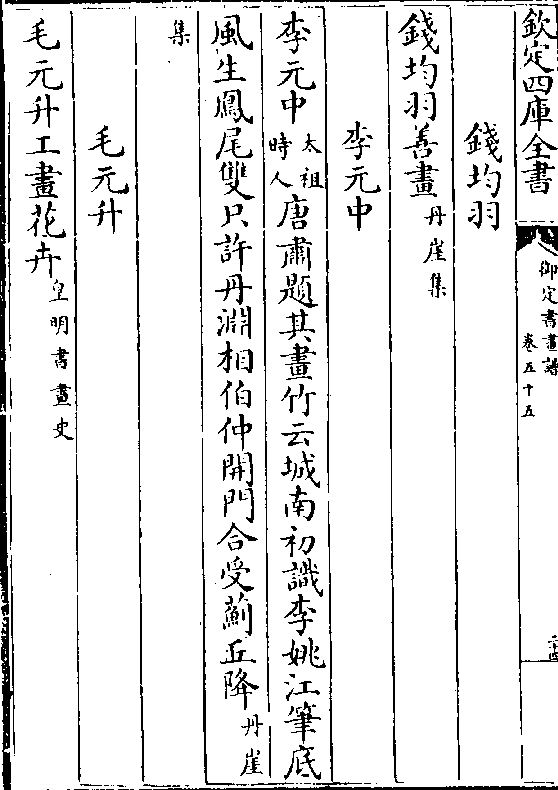 欽定四庫全書
御定書畫譜
卷五十五
二十四
錢均羽
錢均羽善畫丹崖集
李元中
李元中太祖時人唐肅題其畫竹云城南初識李姚江筆底
風生鳳尾雙只許丹淵相伯仲開門合受薊丘降丹崖
集
毛元升
毛元升工畫花卉皇明書畫史